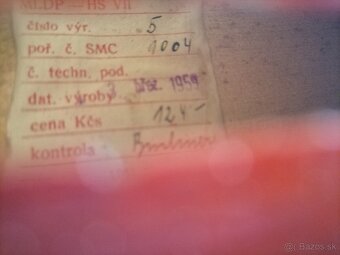 MLDP — HS VII
číslo výr. 5
poř. č. SMC 9004
č. techn. pod.
dat. výroby 3. břez. 1959
cena Kčs 124-
kontrola :
© Bazos.sk